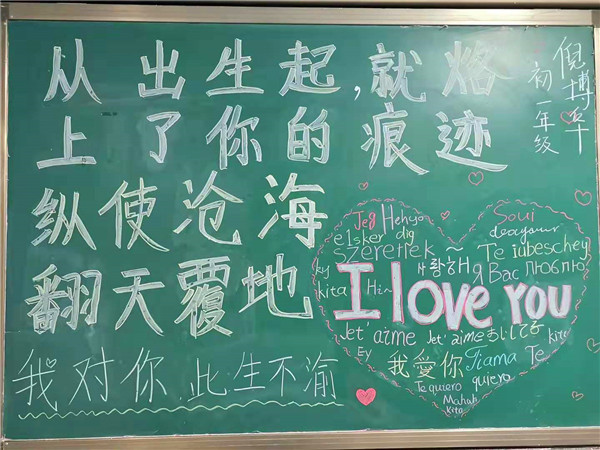 从出生起,就烙
上了你的痕迹
纵使沧海
翻天覆地
我对你,此生不渝
倪博
初一年级
Jeg
elsker dig
szeretlek ~
Soui
Te iubeschey
사랑해
Я Вас люблю
kita
Hi~
I love You
Jet'aime
Jet'aime
あいしてる
Ey
我愛你
Tiama
Te
Te quiero
quiero
Mahah
Kita